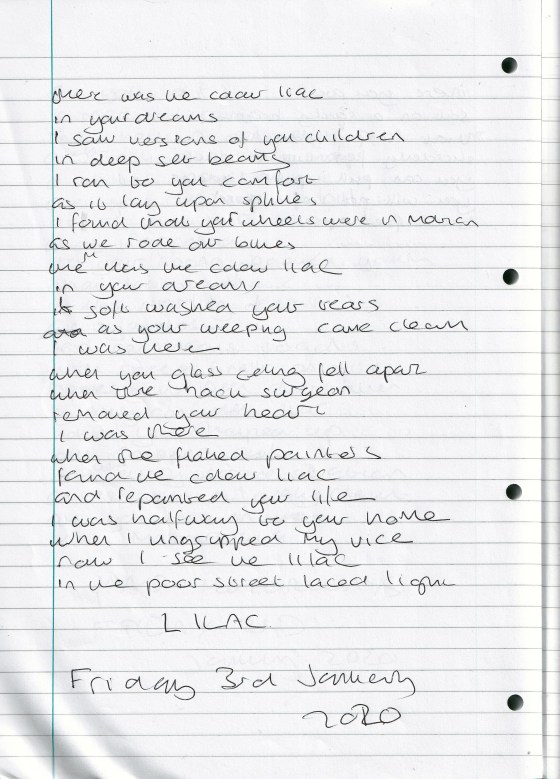 there was the colour lilac
in your dreams
I saw versions of you children
in deep set beams
I ran to you comfort
as it lay upon splines
I found that your wheels were in motion
as we rode our bikes
there was the colour lilac
in your dreams
it soft washed your tears
as your weeping came clean
I was here
when you glass ceiling fell apart
when the hack surgeon
removed your heart
I was there
when the flaked painters
found the colour lilac
and repainted your life
I was halfway to your home
when I ungripped my vice
now I see the lilac
in the poor street laced light
LILAC
Friday 3rd January
2020